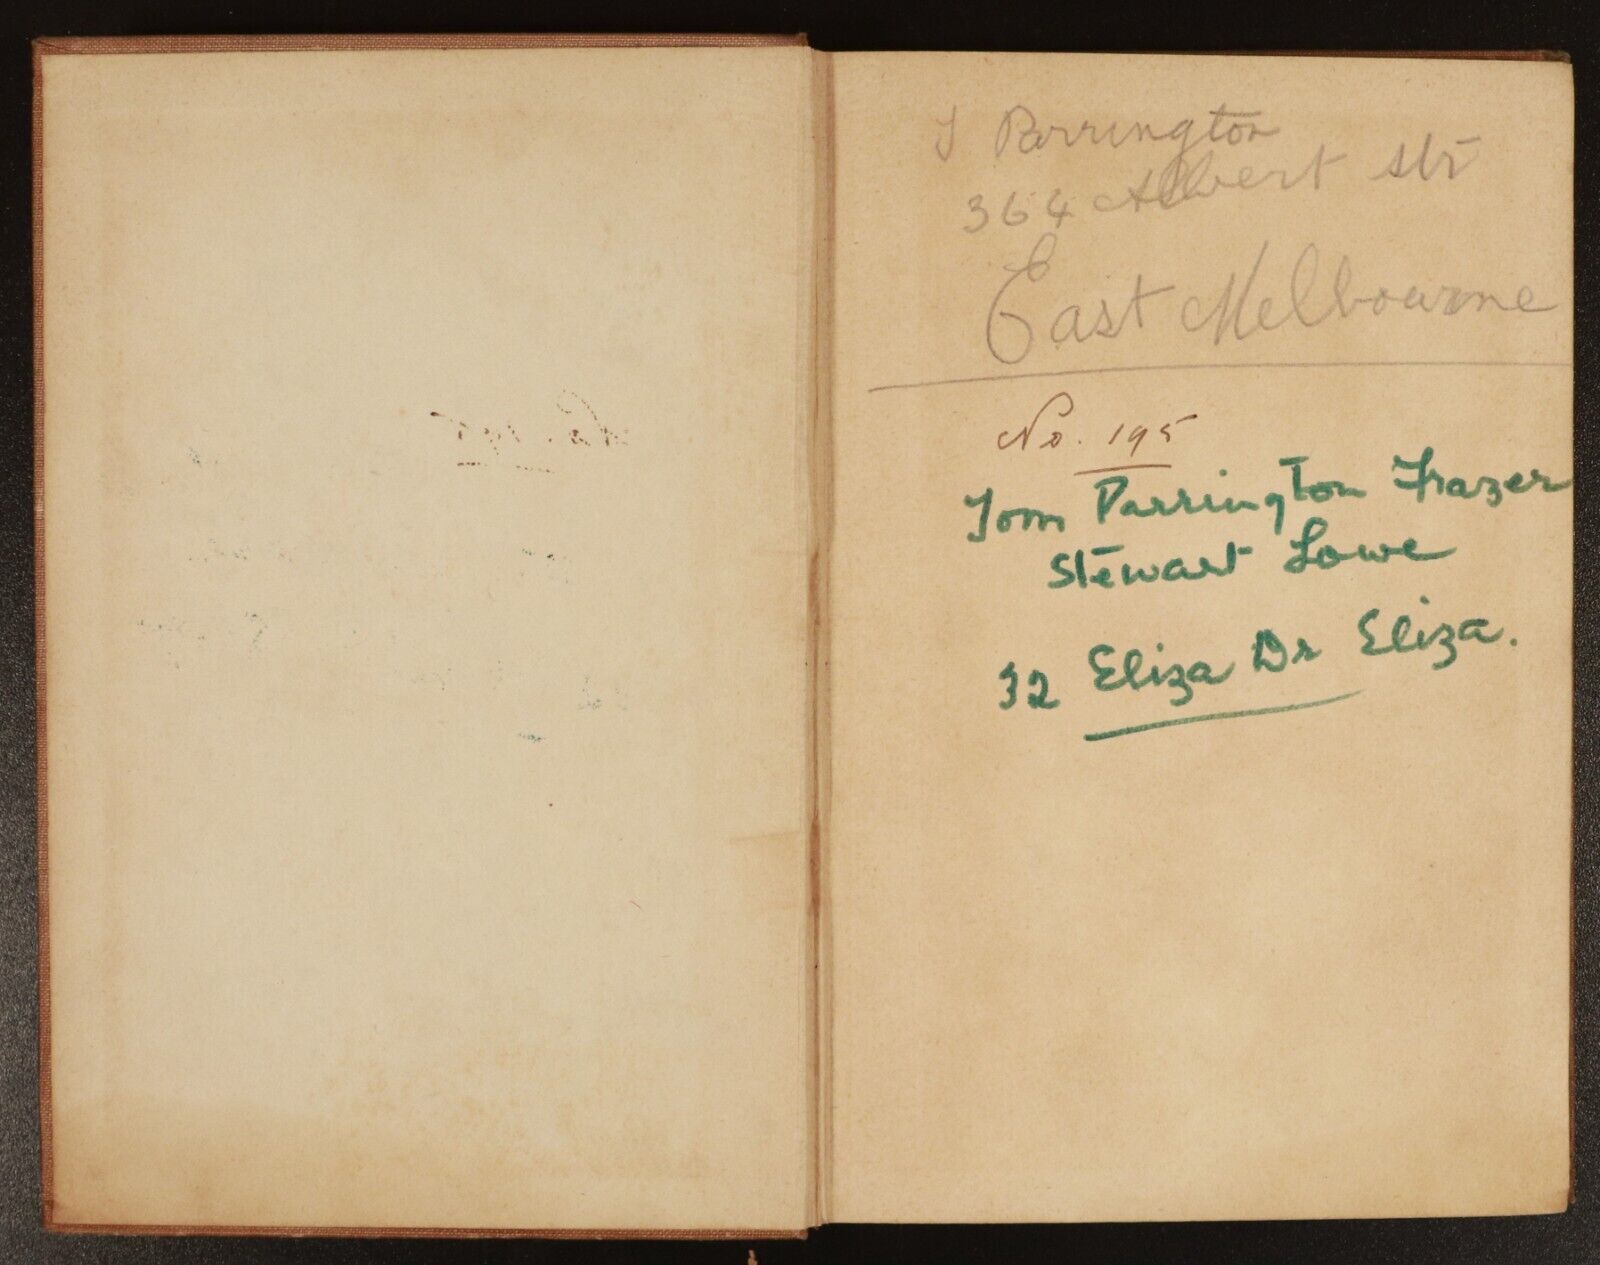 T Parrington
364 Albert Str
East Melbourne
No. 195
Tom Parrington Frazer
Stewart Lowe
32 Eliza Dr Eliza.